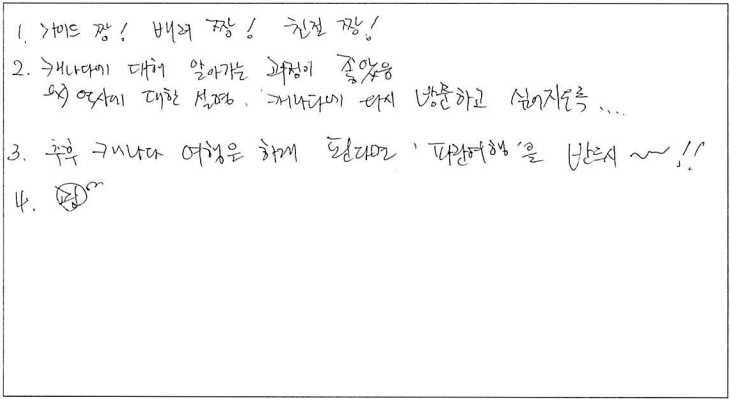 1. 가이드 짱! 배려 짱! 친절 짱!
2. 캐나다에 대해 알아가는 과정이 좋았음
ex) 역사에 대한 설명. 캐나다에 다시 방문하고 싶어지도록....
3. 추후 캐나다 여행을 하게 된다면 '파란여행'을 반드시 ~~!!
4. 짱~